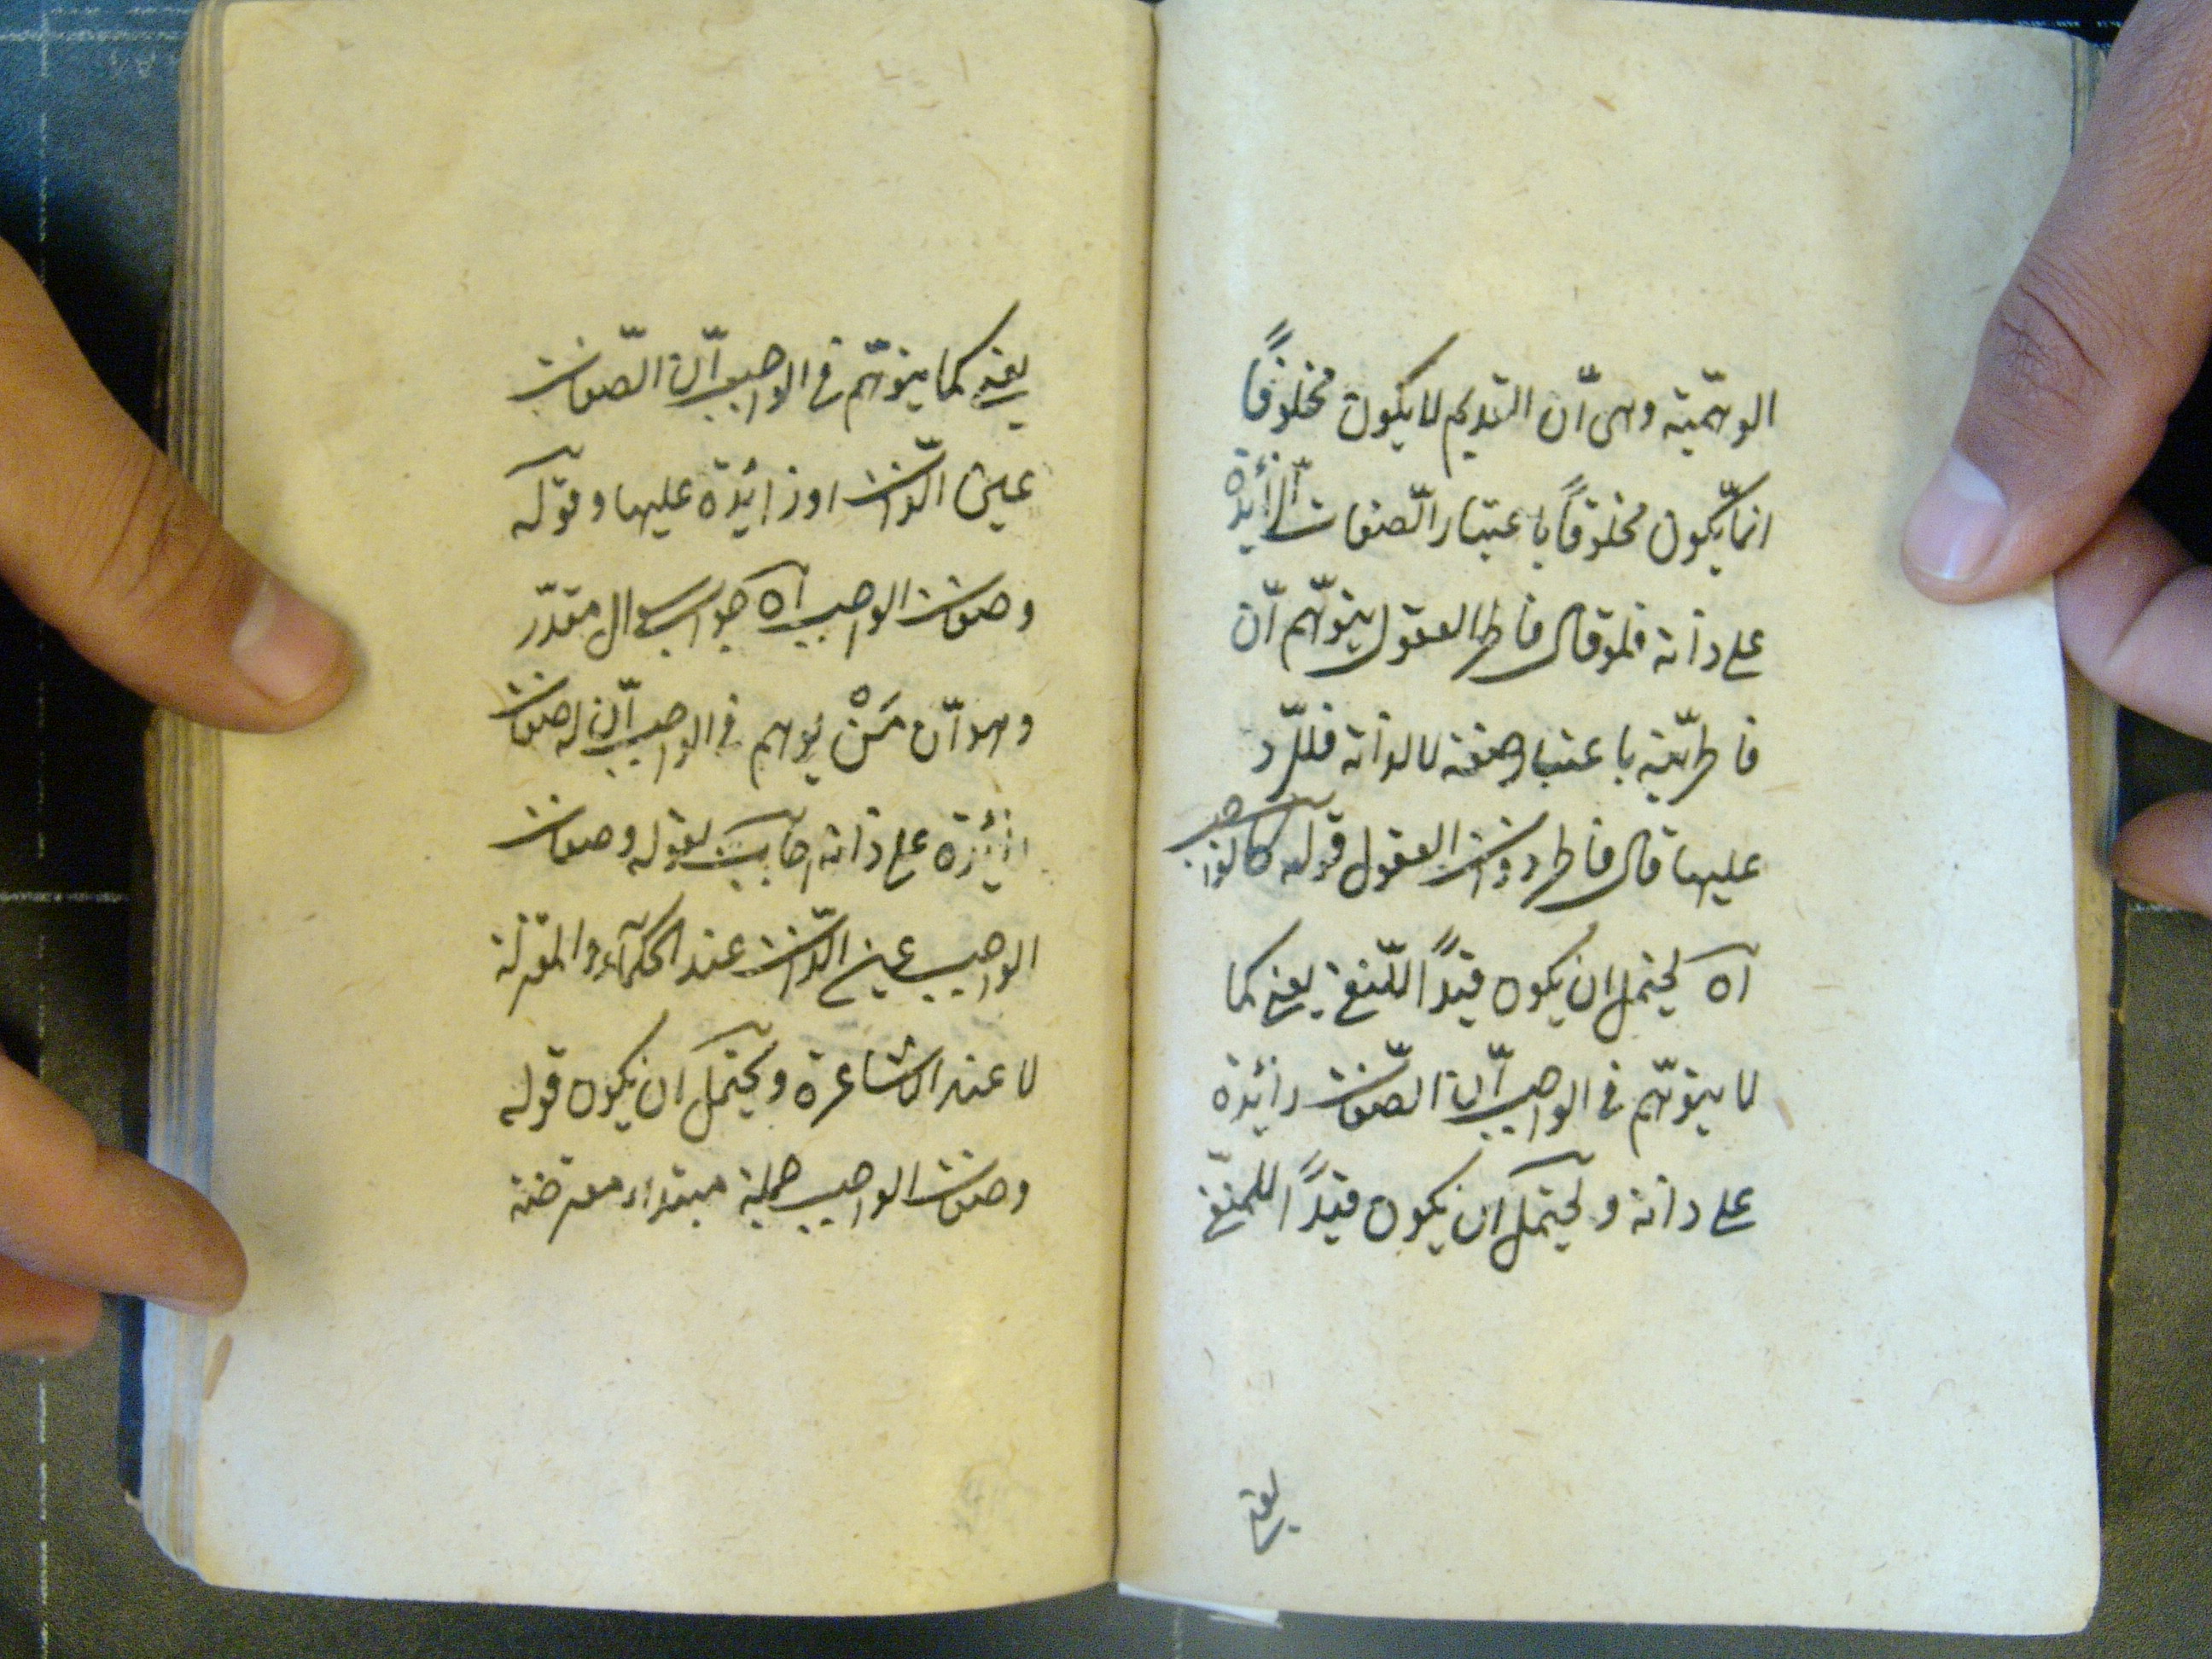 الوهميّة وهى أنّ القديم لا يكون مخلوقًا
انمّا يكون مخلوقًا باعتبار الصّفات الزّائدة
على ذاته فلو قال فاطر العقول يتوهّم أنّ
فاطريّته باعتبار صفته لا لذاته فللرّد
عليها قال فاطر ذوات العقول قوله كالواجب
آه يحتمل ان يكون قيدًا للنّفى يعنى كما
لا يتوهّم فى الواجب أنّ الصّفات زائدة
على ذاته ويحتمل ان يكون قيدًا للمنفىّ
يعنى
يعنى كما يتوهّم فى الواجب أنّ الصّفات
عين الذّات او زائدة عليها وقوله
وصفات الواجب آه جواب سؤال مقدّر
وهو أنّ مَنْ يوهم فى الواجب أنّ له صفات
زائدة على ذاته اجاب بقوله وصفات
الواجب عين الذّات عند الحكمآء والمعتزلة
لا عند الاشاعرة ويحتمل ان يكون قوله
وصفات الواجب جملية مبتداء معترضة